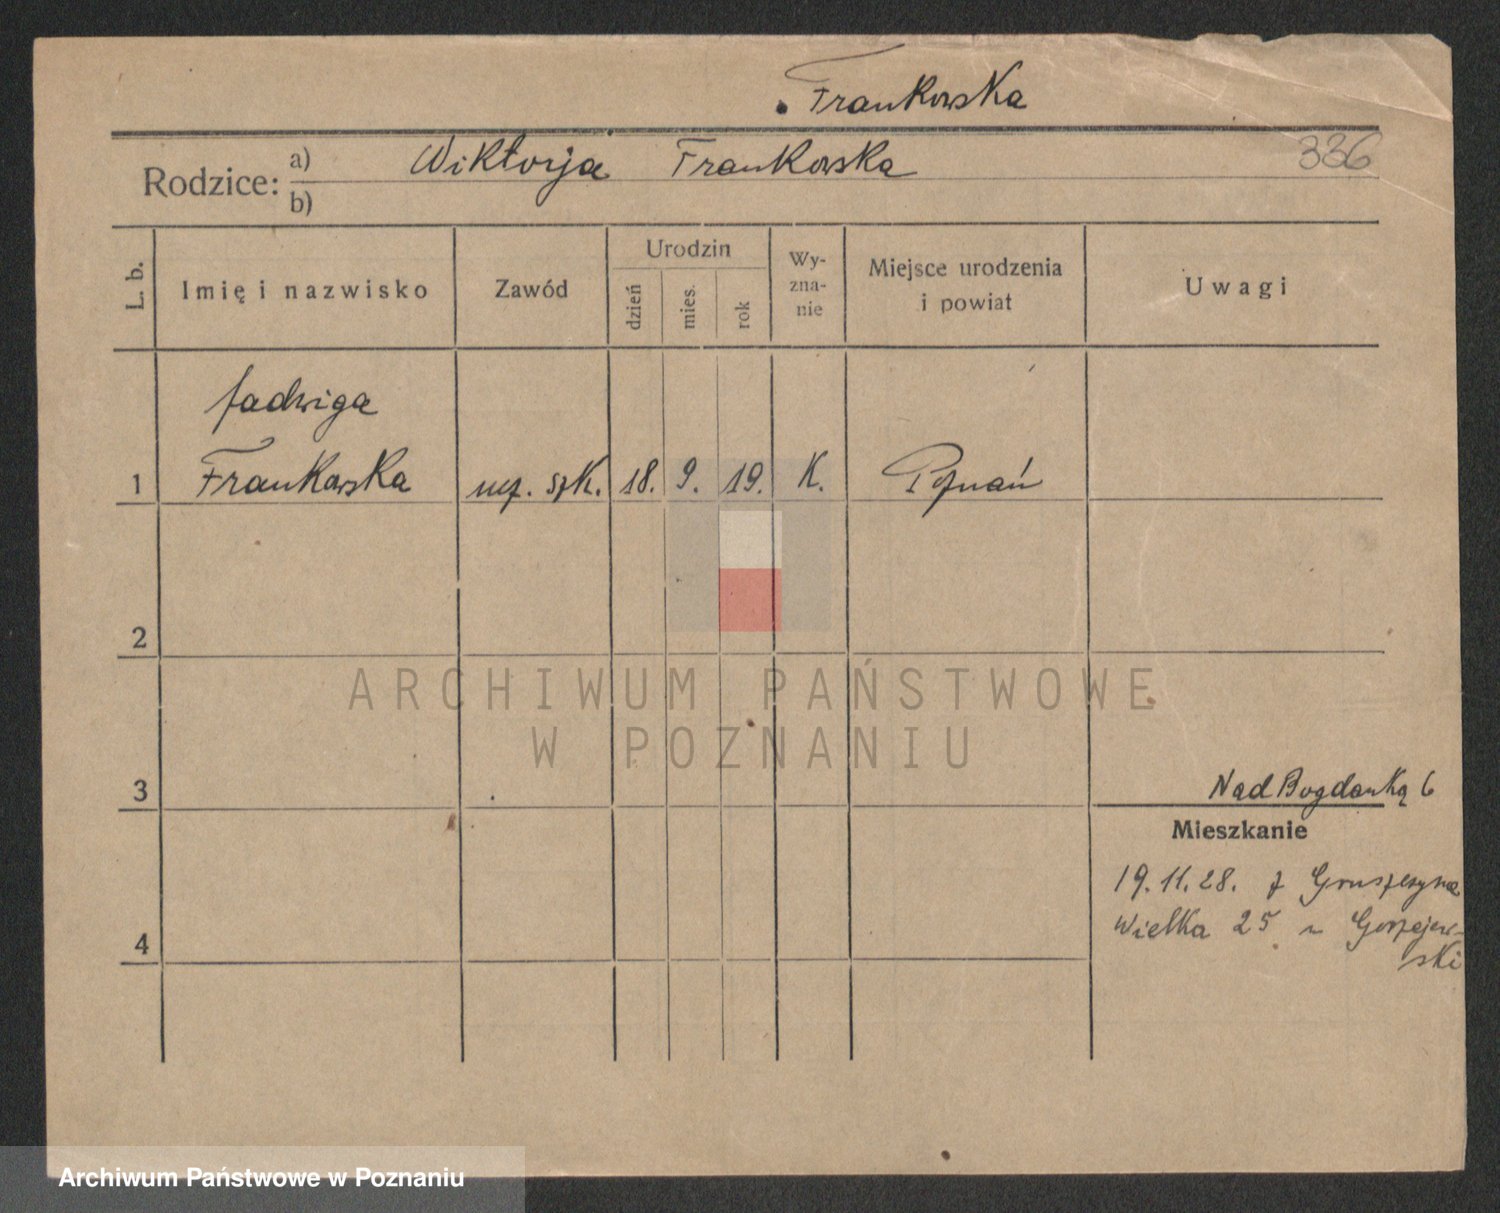 Frankowska
336
Rodzice:
a) Wiktorja Frankowska
b)
L. b.
Imię i nazwisko
Zawód
Urodzin
dzień
mies.
rok
Wy-
zna-
nie
Miejsce urodzenia
i powiat
Uwagi
Jadwiga
1 Frankowska ucz. szk. 18. 9. 19. K. Poznań
2
ARCHIWUM PAŃSTWOWE
W POZNANIU
3
Nad Bogdanką 6
Mieszkanie
19.11.28. z Gruszczyna
Wielka 25 u Gorzejew-
ski
4
Archiwum Państwowe w Poznaniu